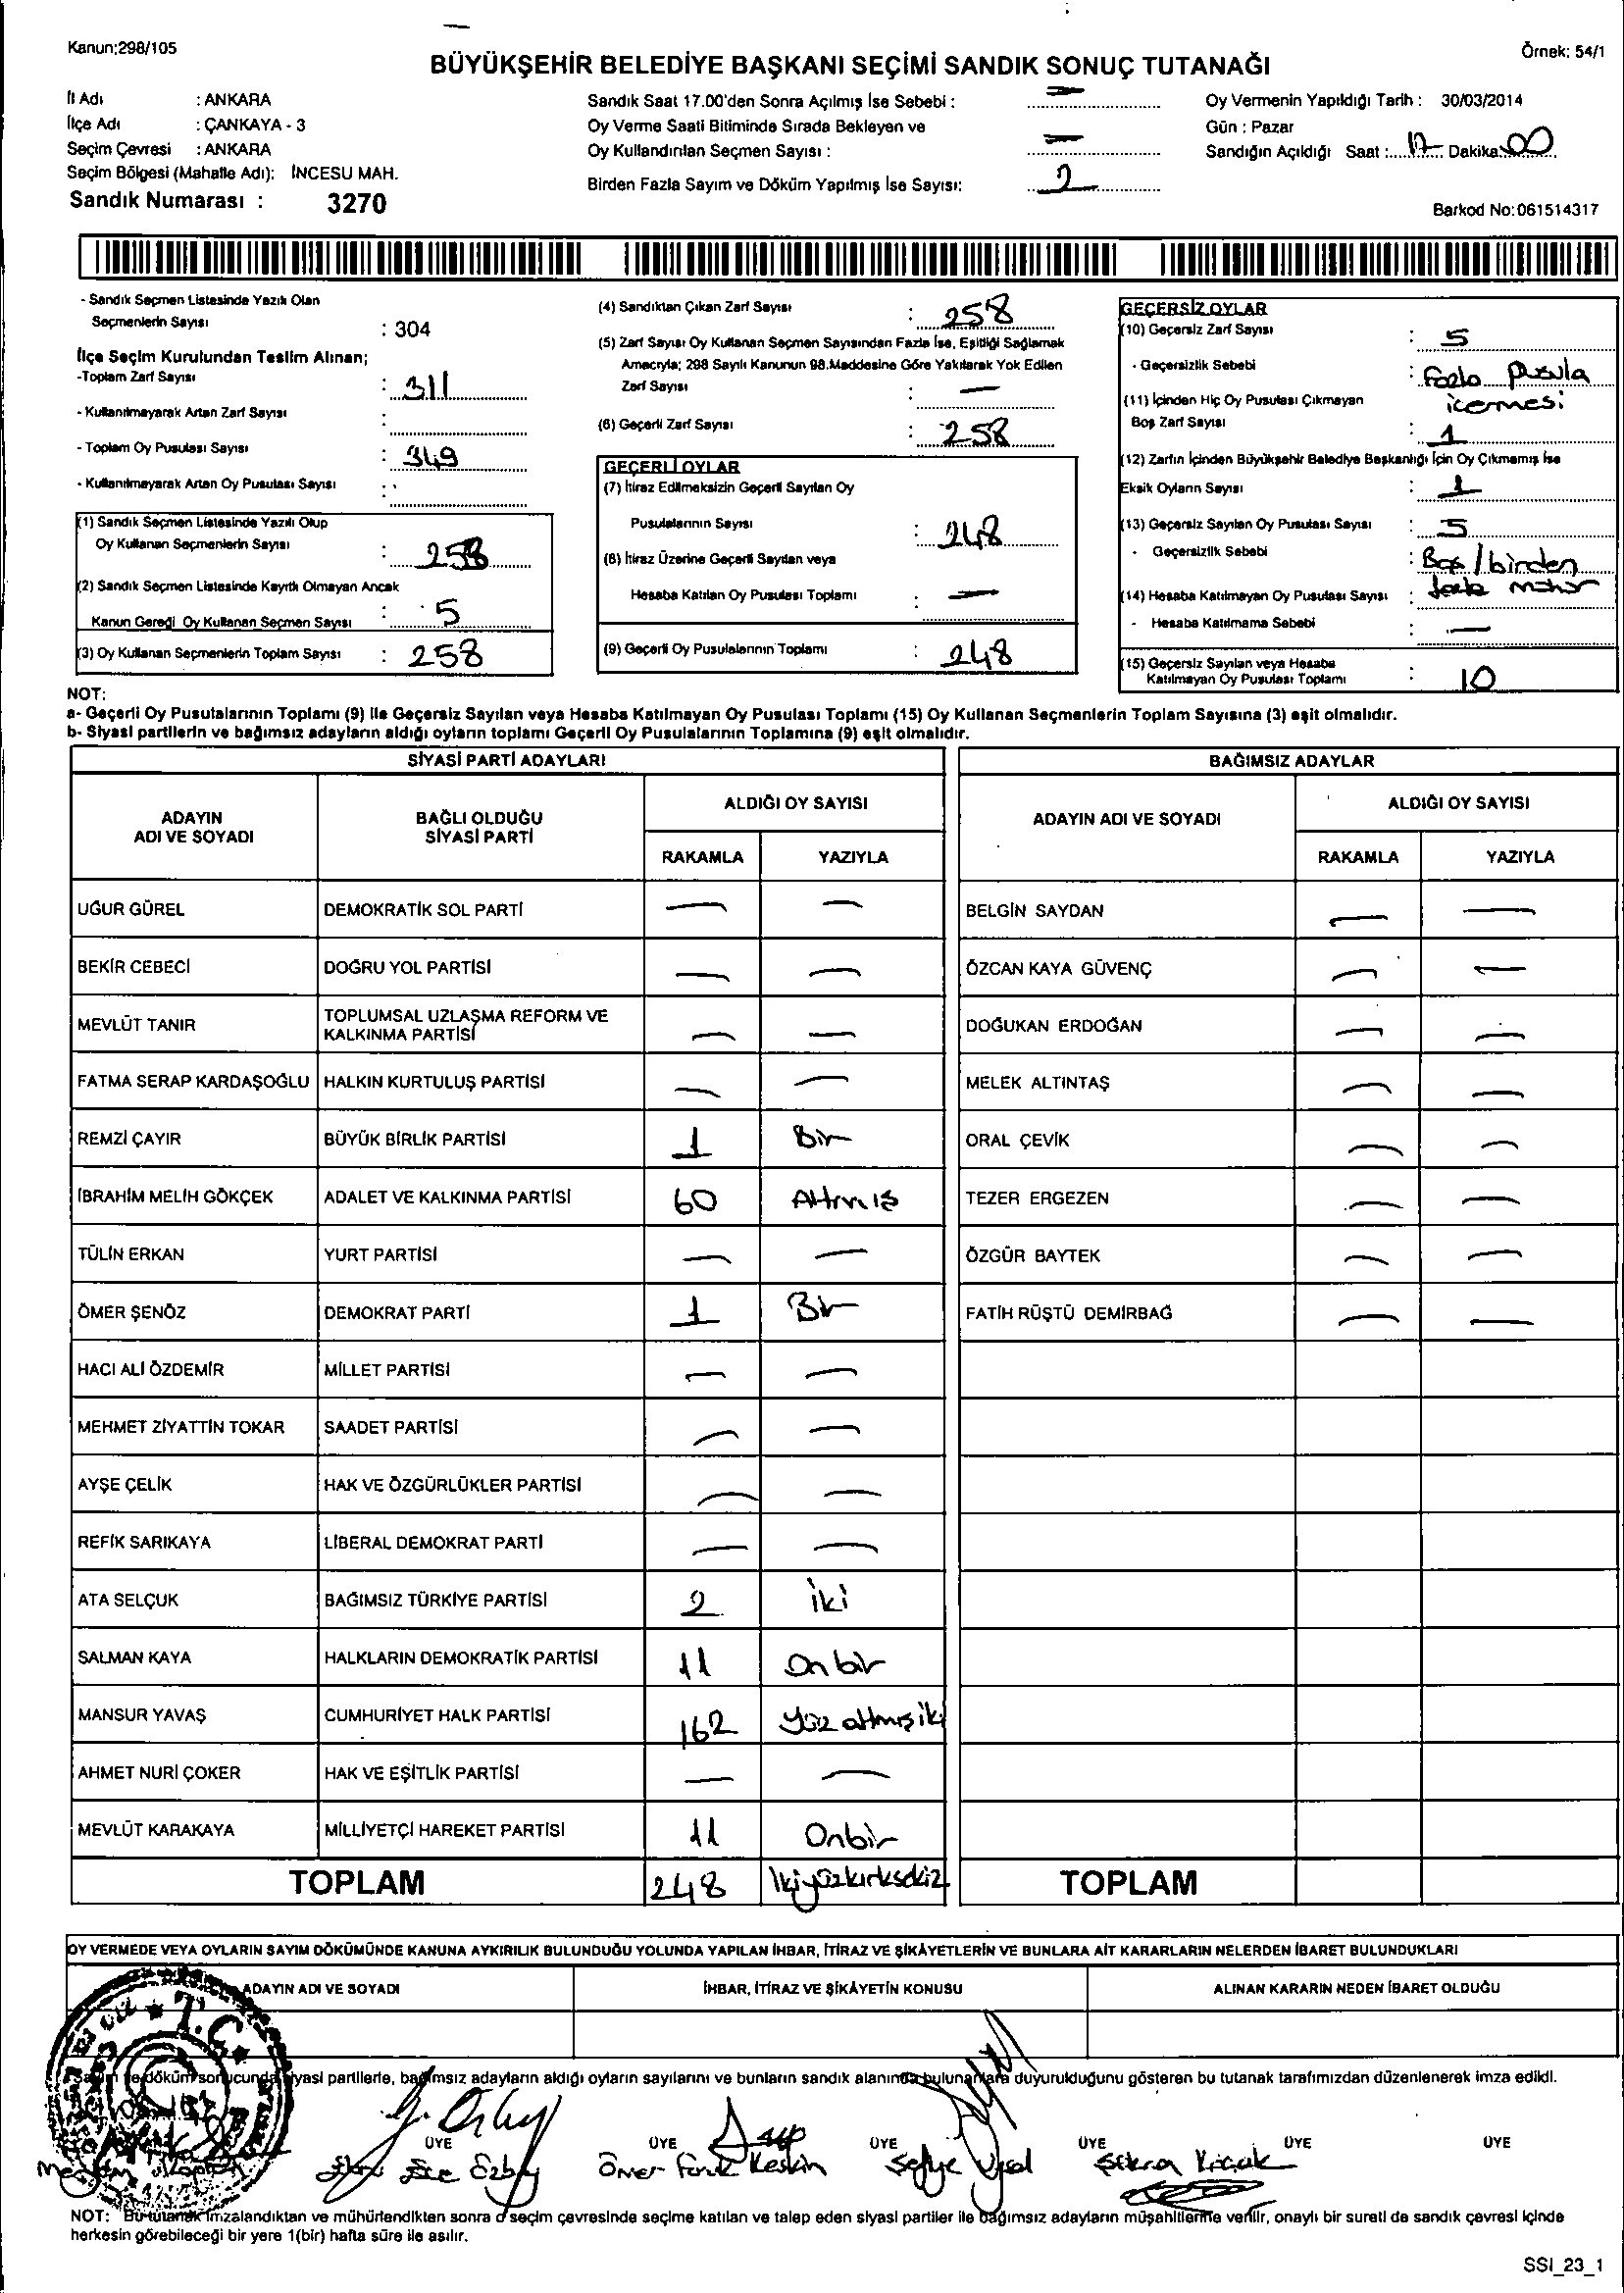 Kanun;298/105
Örnek: 54/1
BÜYÜKŞEHİR BELEDİYE BAŞKANI SEÇİMİ SANDIK SONUÇ TUTANAĞI
İl Adı : ANKARA
İlçe Adı : ÇANKAYA - 3
Seçim Çevresi : ANKARA
Seçim Bölgesi (Mahalle Adı): İNCESU MAH.
Sandık Numarası : 3270
Sandık Saat 17.00'den Sonra Açılmış İse Sebebi : —
Oy Verme Saati Bitiminde Sırada Bekleyen ve
Oy Kullandırılan Seçmen Sayısı : —
Birden Fazla Sayım ve Döküm Yapılmış İse Sayısı: 2
Oy Vermenin Yapıldığı Tarih : 30/03/2014
Gün : Pazar
Sandığın Açıldığı Saat : 17 Dakika: 00
Barkod No:061514317
- Sandık Seçmen Listesinde Yazılı Olan
Seçmenlerin Sayısı : 304
İlçe Seçim Kurulundan Teslim Alınan;
-Toplam Zarf Sayısı : 311
- Kullanılmayarak Artan Zarf Sayısı :
- Toplam Oy Pusulası Sayısı : 349
- Kullanılmayarak Artan Oy Pusulası Sayısı :
(1) Sandık Seçmen Listesinde Yazılı Olup
Oy Kullanan Seçmenlerin Sayısı :
(2) Sandık Seçmen Listesinde Kayıtlı Olmayan Ancak
Kanun Gereği Oy Kullanan Seçmen Sayısı : 5
(3) Oy Kullanan Seçmenlerin Toplam Sayısı : 258
(4) Sandıktan Çıkan Zarf Sayısı : 258
(5) Zarf Sayısı Oy Kullanan Seçmen Sayısından Fazla İse, Eşitliği Sağlamak
Amacıyla; 298 Sayılı Kanunun 98.Maddesine Göre Yakılarak Yok Edilen
Zarf Sayısı : —
(6) Geçerli Zarf Sayısı : 258
GEÇERLİ OYLAR
(7) İtiraz Edilmeksizin Geçerli Sayılan Oy
Pusulalarının Sayısı : 248
(8) İtiraz Üzerine Geçerli Sayılan veya
Hesaba Katılan Oy Pusulası Toplamı : —
(9) Geçerli Oy Pusulalarının Toplamı : 248
GEÇERSİZ OYLAR
(10) Geçersiz Zarf Sayısı : 5
- Geçersizlik Sebebi : Fazla Pusula
içermesi
(11) İçinden Hiç Oy Pusulası Çıkmayan
Boş Zarf Sayısı : 1
(12) Zarfın İçinden Büyükşehir Belediye Başkanlığı İçin Oy Çıkmamış İse
Eksik Oyların Sayısı : 1
(13) Geçersiz Sayılan Oy Pusulası Sayısı : 5
- Geçersizlik Sebebi : Boş / birden
fazla mühür
(14) Hesaba Katılmayan Oy Pusulası Sayısı :
- Hesaba Katılmama Sebebi : —
(15) Geçersiz Sayılan veya Hesaba
Katılmayan Oy Pusulası Toplamı : 10
NOT:
a- Geçerli Oy Pusulalarının Toplamı (9) ile Geçersiz Sayılan veya Hesaba Katılmayan Oy Pusulası Toplamı (15) Oy Kullanan Seçmenlerin Toplam Sayısına (3) eşit olmalıdır.
b- Siyasi partilerin ve bağımsız adayların aldığı oyların toplamı Geçerli Oy Pusulalarının Toplamına (9) eşit olmalıdır.
SİYASİ PARTİ ADAYLARI
ADAYIN
ADI VE SOYADI
BAĞLI OLDUĞU
SİYASİ PARTİ
ALDIĞI OY SAYISI
RAKAMLA YAZIYLA
UĞUR GÜREL DEMOKRATİK SOL PARTİ — —
BEKİR CEBECİ DOĞRU YOL PARTİSİ — —
MEVLÜT TANIR TOPLUMSAL UZLAŞMA REFORM VE
KALKINMA PARTİSİ — —
FATMA SERAP KARDAŞOĞLU HALKIN KURTULUŞ PARTİSİ — —
REMZİ ÇAYIR BÜYÜK BİRLİK PARTİSİ 1 Bir
İBRAHİM MELİH GÖKÇEK ADALET VE KALKINMA PARTİSİ 60 Altmış
TÜLİN ERKAN YURT PARTİSİ — —
ÖMER ŞENÖZ DEMOKRAT PARTİ 1 Bir
HACI ALİ ÖZDEMİR MİLLET PARTİSİ — —
MEHMET ZİYATTİN TOKAR SAADET PARTİSİ — —
AYŞE ÇELİK HAK VE ÖZGÜRLÜKLER PARTİSİ — —
REFİK SARIKAYA LİBERAL DEMOKRAT PARTİ — —
ATA SELÇUK BAĞIMSIZ TÜRKİYE PARTİSİ 2 iki
SALMAN KAYA HALKLARIN DEMOKRATİK PARTİSİ 11 Onbir
MANSUR YAVAŞ CUMHURİYET HALK PARTİSİ 162 Yüz altmış iki
AHMET NURİ ÇOKER HAK VE EŞİTLİK PARTİSİ — —
MEVLÜT KARAKAYA MİLLİYETÇİ HAREKET PARTİSİ 11 Onbir
TOPLAM 248 İkiyüzkırksekiz
BAĞIMSIZ ADAYLAR
ADAYIN ADI VE SOYADI
ALDIĞI OY SAYISI
RAKAMLA YAZIYLA
BELGİN SAYDAN — —
ÖZCAN KAYA GÜVENÇ — —
DOĞUKAN ERDOĞAN — —
MELEK ALTINTAŞ — —
ORAL ÇEVİK — —
TEZER ERGEZEN — —
ÖZGÜR BAYTEK — —
FATİH RÜŞTÜ DEMİRBAĞ — —
TOPLAM
OY VERMEDE VEYA OYLARIN SAYIM DÖKÜMÜNDE KANUNA AYKIRILIK BULUNDUĞU YOLUNDA YAPILAN İHBAR, İTİRAZ VE ŞİKÂYETLERİN VE BUNLARA AİT KARARLARIN NELERDEN İBARET BULUNDUKLARI
ADAYIN ADI VE SOYADI
İHBAR, İTİRAZ VE ŞİKÂYETİN KONUSU
ALINAN KARARIN NEDEN İBARET OLDUĞU
T.C.
döküm sonucunda siyasi partilerle, bağımsız adayların aldığı oyların sayılarını ve bunların sandık alanında bulunanlara duyurulduğunu gösteren bu tutanak tarafımızdan düzenlenerek imza edildi.
ÜYE ÜYE ÜYE ÜYE ÜYE ÜYE
Ömer Faruk Keskin
NOT: Bu tutanak imzalandıktan ve mühürlendikten sonra o seçim çevresinde seçime katılan ve talep eden siyasi partiler ile bağımsız adayların müşahitlerine verilir, onaylı bir sureti de sandık çevresi içinde
herkesin görebileceği bir yere 1(bir) hafta süre ile asılır.
SSI_23_1